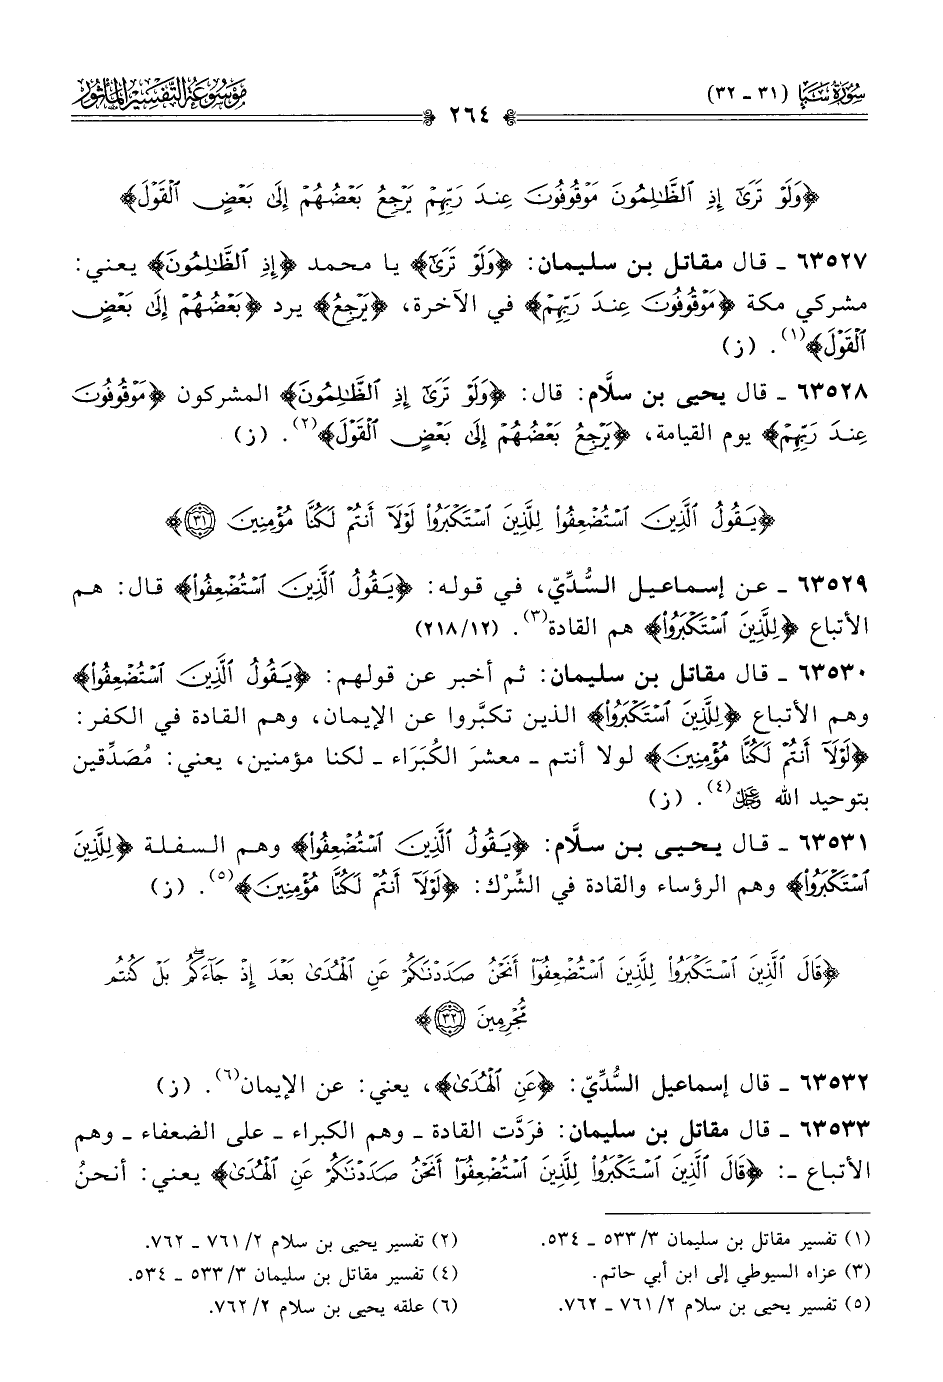 سورة سبإ (٣١ - ٣٢)
موسوعة التفسير المأثور
٢٦٤
﴿وَلَوْ تَرَىٰٓ إِذِ ٱلظَّٰلِمُونَ مَوْقُوفُونَ عِندَ رَبِّهِمْ يَرْجِعُ بَعْضُهُمْ إِلَىٰ بَعْضٍ ٱلْقَوْلَ﴾
٦٣٥٢٧ - قال مقاتل بن سليمان: ﴿وَلَوْ تَرَىٰٓ﴾ يا محمد ﴿إِذِ ٱلظَّٰلِمُونَ﴾ يعني:
مشركي مكة ﴿مَوْقُوفُونَ عِندَ رَبِّهِمْ﴾ في الآخرة، ﴿يَرْجِعُ﴾ يرد ﴿بَعْضُهُمْ إِلَىٰ بَعْضٍ
ٱلْقَوْلَ﴾(١). (ز)
٦٣٥٢٨ - قال يحيى بن سلَّام: قال: ﴿وَلَوْ تَرَىٰٓ إِذِ ٱلظَّٰلِمُونَ﴾ المشركون ﴿مَوْقُوفُونَ
عِندَ رَبِّهِمْ﴾ يوم القيامة، ﴿يَرْجِعُ بَعْضُهُمْ إِلَىٰ بَعْضٍ ٱلْقَوْلَ﴾(٢). (ز)
﴿يَقُولُ ٱلَّذِينَ ٱسْتُضْعِفُوا۟ لِلَّذِينَ ٱسْتَكْبَرُوا۟ لَوْلَآ أَنتُمْ لَكُنَّا مُؤْمِنِينَ ٣١﴾
٦٣٥٢٩ - عن إسماعيل السُّدِّيّ، في قوله: ﴿يَقُولُ ٱلَّذِينَ ٱسْتُضْعِفُوا۟﴾ قال: هم
الأتباع ﴿لِلَّذِينَ ٱسْتَكْبَرُوا۟﴾ هم القادة(٣). (٢١٨/١٢)
٦٣٥٣٠ - قال مقاتل بن سليمان: ثم أخبر عن قولهم: ﴿يَقُولُ ٱلَّذِينَ ٱسْتُضْعِفُوا۟﴾
وهم الأتباع ﴿لِلَّذِينَ ٱسْتَكْبَرُوا۟﴾ الذين تكبَّروا عن الإيمان، وهم القادة في الكفر:
﴿لَوْلَآ أَنتُمْ لَكُنَّا مُؤْمِنِينَ﴾ لولا أنتم - معشرَ الكُبَرَاء - لكنا مؤمنين، يعني: مُصَدِّقين
بتوحيد الله ﷿(٤). (ز)
٦٣٥٣١ - قال يحيى بن سلَّام: ﴿يَقُولُ ٱلَّذِينَ ٱسْتُضْعِفُوا۟﴾ وهم السفلة ﴿لِلَّذِينَ
ٱسْتَكْبَرُوا۟﴾ وهم الرؤساء والقادة في الشِّرْك: ﴿لَوْلَآ أَنتُمْ لَكُنَّا مُؤْمِنِينَ﴾(٥). (ز)
﴿قَالَ ٱلَّذِينَ ٱسْتَكْبَرُوا۟ لِلَّذِينَ ٱسْتُضْعِفُوٓا۟ أَنَحْنُ صَدَدْنَٰكُمْ عَنِ ٱلْهُدَىٰ بَعْدَ إِذْ جَآءَكُم بَلْ كُنتُم
مُّجْرِمِينَ ٣٢﴾
٦٣٥٣٢ - قال إسماعيل السُّدِّيّ: ﴿عَنِ ٱلْهُدَىٰ﴾، يعني: عن الإيمان(٦). (ز)
٦٣٥٣٣ - قال مقاتل بن سليمان: فرَدَّت القادة - وهم الكبراء - على الضعفاء - وهم
الأتباع -: ﴿قَالَ ٱلَّذِينَ ٱسْتَكْبَرُوا۟ لِلَّذِينَ ٱسْتُضْعِفُوٓا۟ أَنَحْنُ صَدَدْنَٰكُمْ عَنِ ٱلْهُدَىٰ﴾ يعني: أنحنُ
(١) تفسير مقاتل بن سليمان ٥٣٣/٣ - ٥٣٤.
(٢) تفسير يحيى بن سلام ٧٦١/٢ - ٧٦٢.
(٣) عزاه السيوطي إلى ابن أبي حاتم.
(٤) تفسير مقاتل بن سليمان ٥٣٣/٣ - ٥٣٤.
(٥) تفسير يحيى بن سلام ٧٦١/٢ - ٧٦٢.
(٦) علقه يحيى بن سلام ٧٦٢/٢.